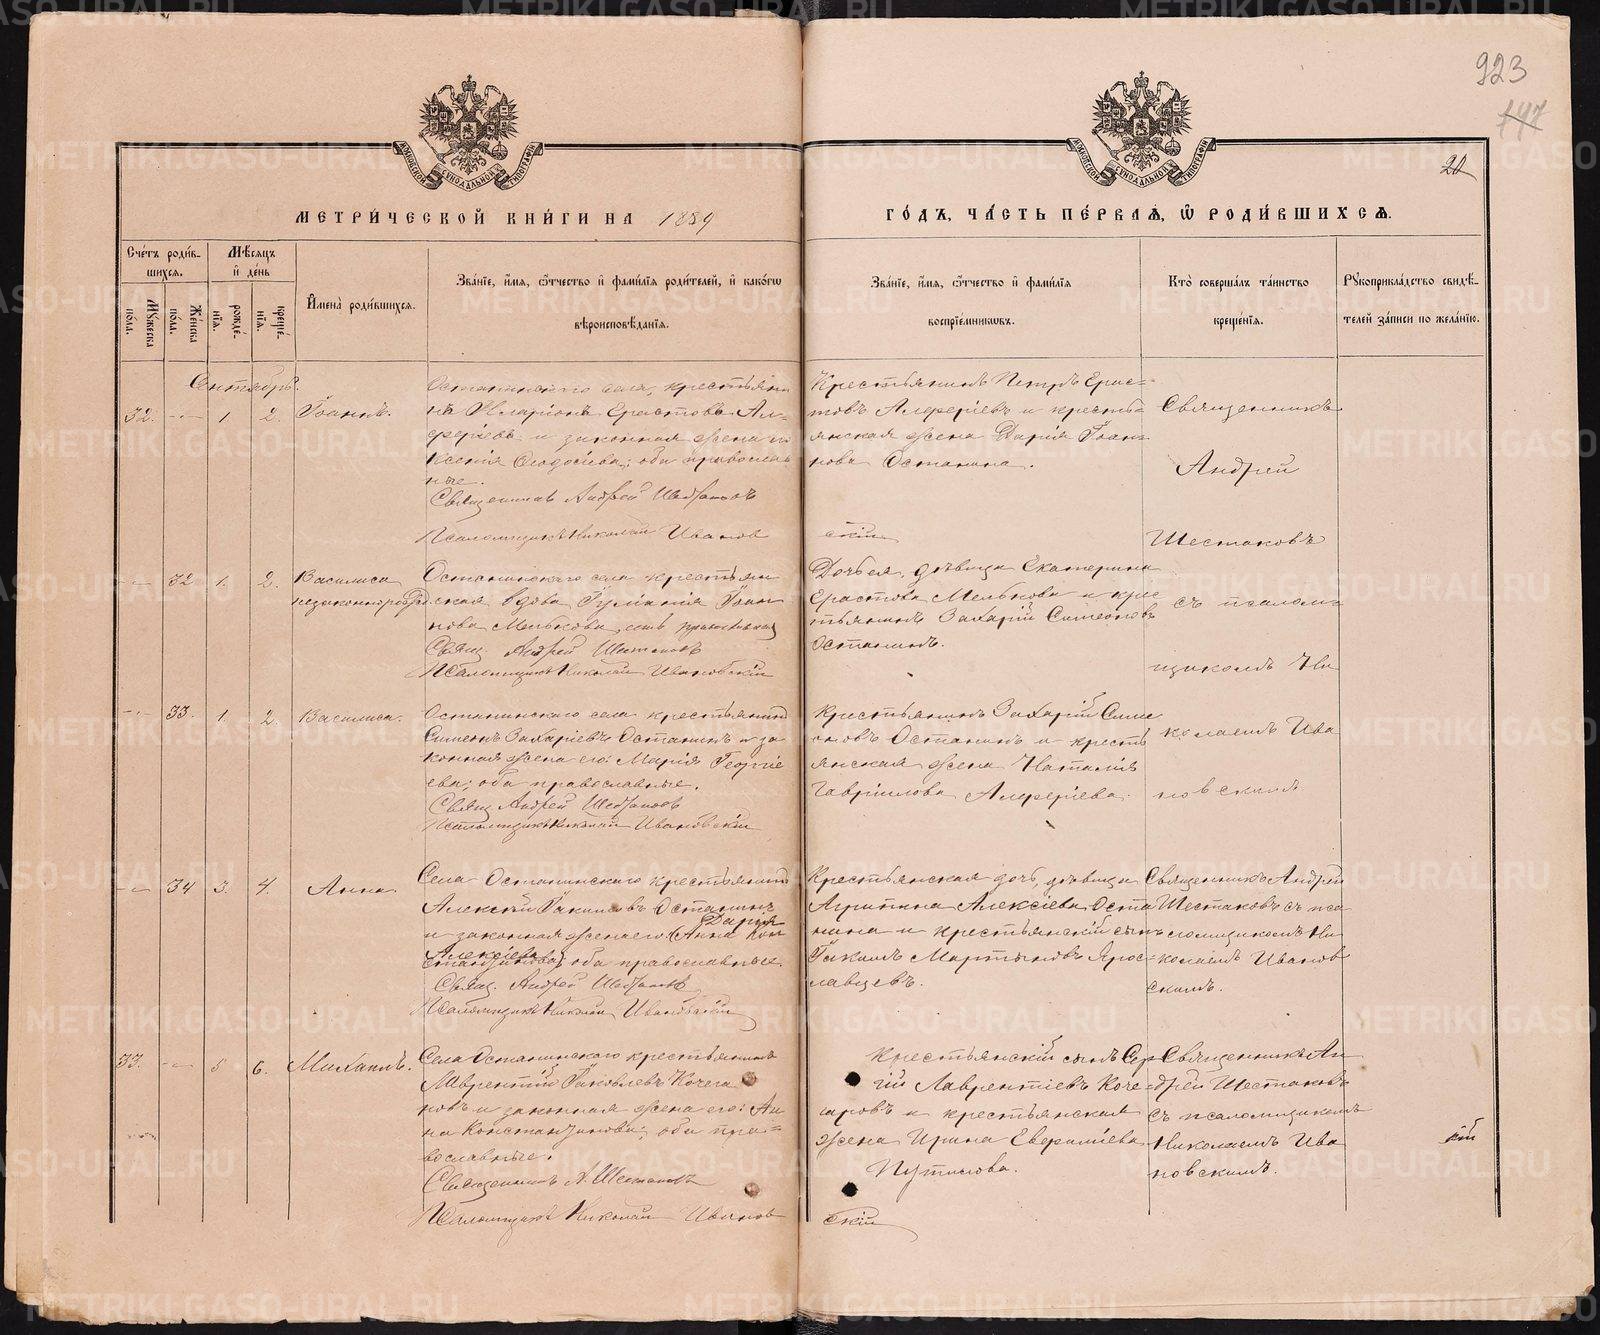 923
147
20
МОСКОВСКОЙ СѴНОДАЛЬНОЙ ТИПОГРАФІИ
МОСКОВСКОЙ СѴНОДАЛЬНОЙ ТИПОГРАФІИ
МЕТРИ́ЧЕСКОЙ КНИ́ГИ НА 1889
ГО́ДЪ, ЧА́СТЬ ПЕ́РВАѦ, Ѿ РОДИ́ВШИХСѦ.
Сче́тъ роди́в-
шихсѧ.
Мꙋ́жеска по́ла.
Же́нска по́ла.
Мѣ́сѧцъ
и҆ де́нь
рожде́-
нїѧ.
креще́-
нїѧ.
И҆мена̀ роди́вшихсѧ.
Зва́нїе, и҆́мѧ, ѻ҆́тчество и҆ фами́лїѧ роди́телей, и҆ како́гѡ
вѣроисповѣ́данїѧ.
Зва́нїе, и҆́мѧ, ѻ҆́тчество и҆ фами́лїѧ
воспрїе́мникѡвъ.
Кто̀ соверша́лъ та́инство
креще́нїѧ.
Рꙋкоприкла́дство свидѣ́-
телей за́писи по жела́нїю.
Сентябрь.
32. — 1. 2. Іоаннъ.
Останинскаго села, крестьяни
нъ Иларіонъ Ерастовъ Ал-
феріевъ и законная жена
Ксенія Ѳеодосіева; оба православ
ные.
Священникъ Андрей Шестаковъ
Псаломщикъ Николай Иванов
Крестьянинъ Петръ Ерас-
товъ Алферіевъ и кресть-
янская жена Дарія Іоан-
нова Останина.
скій
Священникъ
Андрей
Шестаковъ
съ псалом-
щикомъ Ни
колаемъ Ива
новскимъ
— 32 1. 2. Василиса
незаконнорожд.
Останинскаго села крестьян
ская вдова Іуліанія Іоан
нова Мелькова, православная
Свящ. Андрей Шестаковъ
Псаломщикъ Николай Ивановскій
Дочь ея, дѣвица Екатерина
Ерастова Мелькова и крес
тьянинъ Захарій Симеоновъ
Останинъ.
— 33. 1. 2. Василиса.
Останинскаго села крестьянинъ
Симеонъ Захаріевъ Останинъ и за
конная жена его Марія Георгіе
ва; оба православные.
Свящ. Андрей Шестаковъ
Псаломщикъ Николай Ивановскій
Крестьянинъ Захарій Симе
оновъ Останинъ и кресть
янская жена Наталія
Гавріилова Алферіева.
— 34 3. 4. Анна
Села Останинскаго крестьянинъ
Алексій Іакимовъ Останинъ
Дарія
и законная жена его (Анна Кон
Алексіева
стантинова) оба православные.
Свящ. Андрей Шестаковъ
Псаломщикъ Николай Ивановскій
Крестьянская дочь, дѣвица
Агрипина Алексіева Оста
нина и крестьянскій сынъ
Іакимъ Мартыновъ Ярос-
лавцевъ.
Священникъ Андрей
Шестаковъ съ пса
ломщикомъ Ни
колаемъ Иванов
скимъ.
33. — 5 6. Михаилъ.
Села Останинскаго крестьянинъ
Лаврентій Іаковлевъ Кочега
ровъ и законная жена его: Ан
на Константинова; оба пра-
вославные.
Священникъ А. Шестаковъ
Псаломщикъ Николай Иванов
Крестьянскій сынъ Сер
гій Лаврентіевъ Коче-
гаровъ и крестьянская
жена Ирина Евфиміева
Путилова.
скій
Священникъ Ан
дрей Шестаковъ
съ псаломщикомъ
Николаемъ Ива
новскимъ.
кій
METRIKI.GASO-URAL.RU